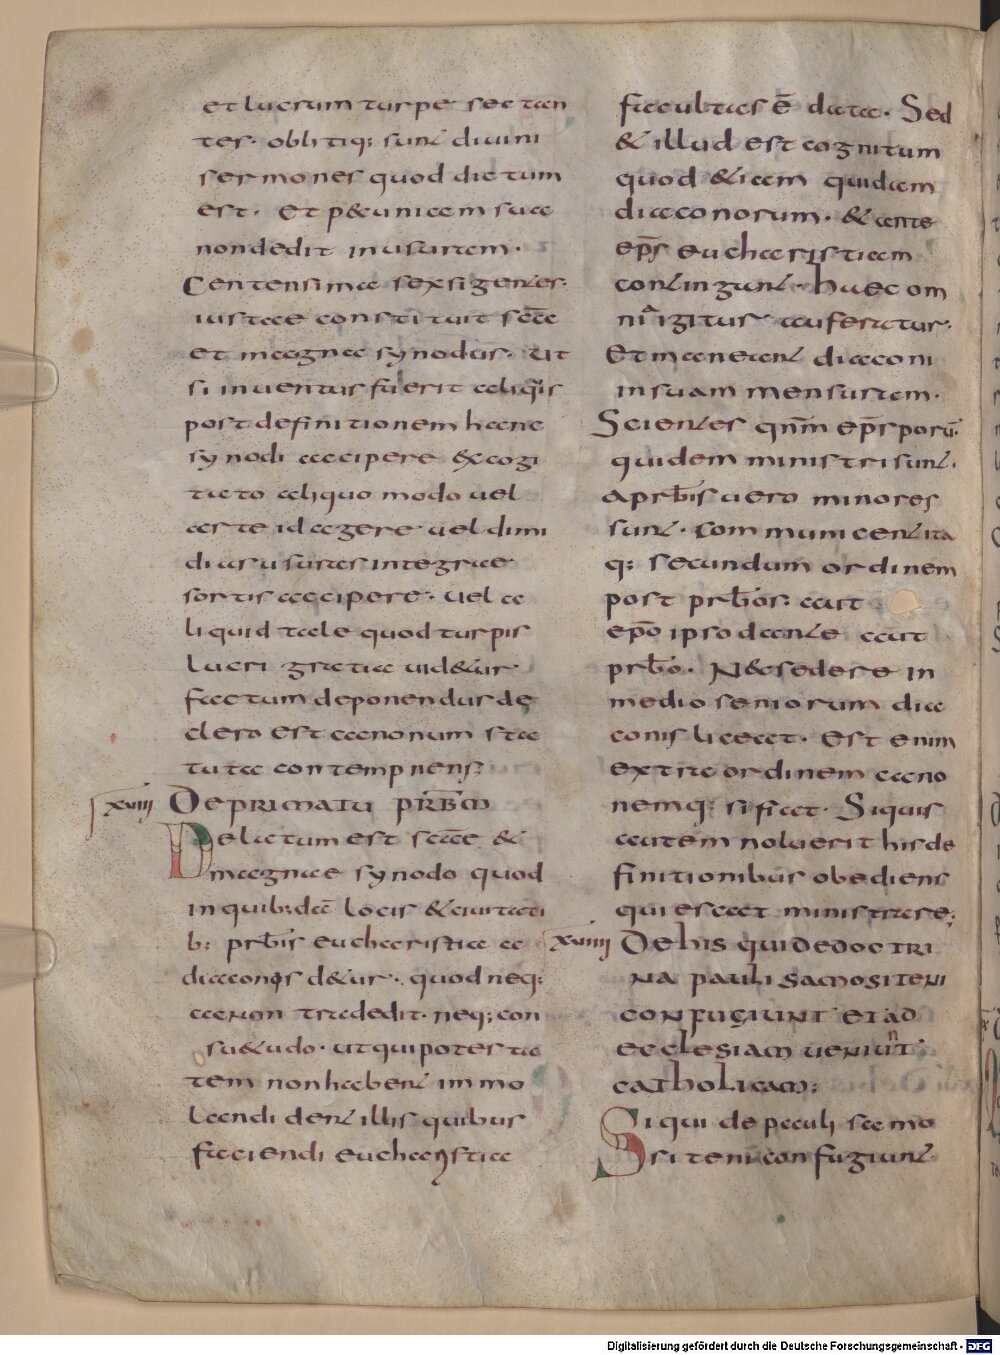 et lucrum turpe sectan
tes· obliti q; sunt diuini
sermones quod dictum
est· Et p&uniam sua
non dedit in usuram·
Centensimas exsigentes·
iustae constituit sc̄a
et magna synodus· Ut
si inuentus fuerit aliq̇s
post definitionem hanc
synodi accipere excogi
tato aliquo modo uel
arte id agere uel dimi
dias usuras integrae
sortis accipere· uel a
liquid tale quod turpis
lucri gratia uid&ur
factum deponendus de
clero est canonum sta
tuta contempnens·
xviii De primatu prb̄m
Delatum est sc̄ae &
magnae synodo quod
in quib;dā locis & ciuitati
b; prb̄is eucharistia a
diaconis d&ur· quod neq;
canon tradedit· neq; con
su&udo· ut qui potesta
tem non habent immo
landi dent illis quibus
faciendi eucharistiae
facultas ē data· Sed
& illud est cognitum
quod &iam quidam
diaconorum· & ante
ep̄s eucharistiam
contingunt· haec om
nia igitur auferatur·
Et maneant diaconi
in suam mensuram·
Scientes qn̄m ep̄sporū
quidem ministri sunt·
a prb̄is uero minores
sunt· Communicent ita
q; secundum ordinem
post prb̄os· aut
ep̄o ipso dante aut
prb̄o· N& sedere in
medio seniorum dia
conis liceat· Est enim
extra ordinem cano
nemq; si fiat· Siquis
autem noluerit his de
finitionibus obediens
quiescat ministrare;
xviiii De his qui de doctri
na pauli samositeni
confugiunt et ad
ecclesiam ueniunt
catholicam;
Si qui de pauli samo
siteni confugiunt
Digitalisierung gefördert durch die Deutsche Forschungsgemeinschaft - DFG